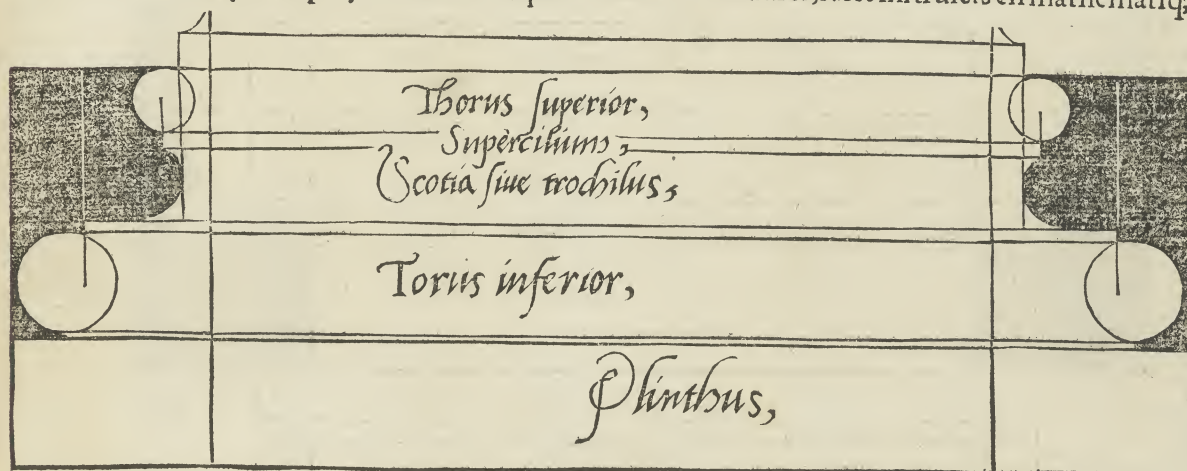 en mathematiq;
Thorus ſuperior,
Supercilium,
Scotia ſiue trochilus,
Torus inferior,
Plinthus,